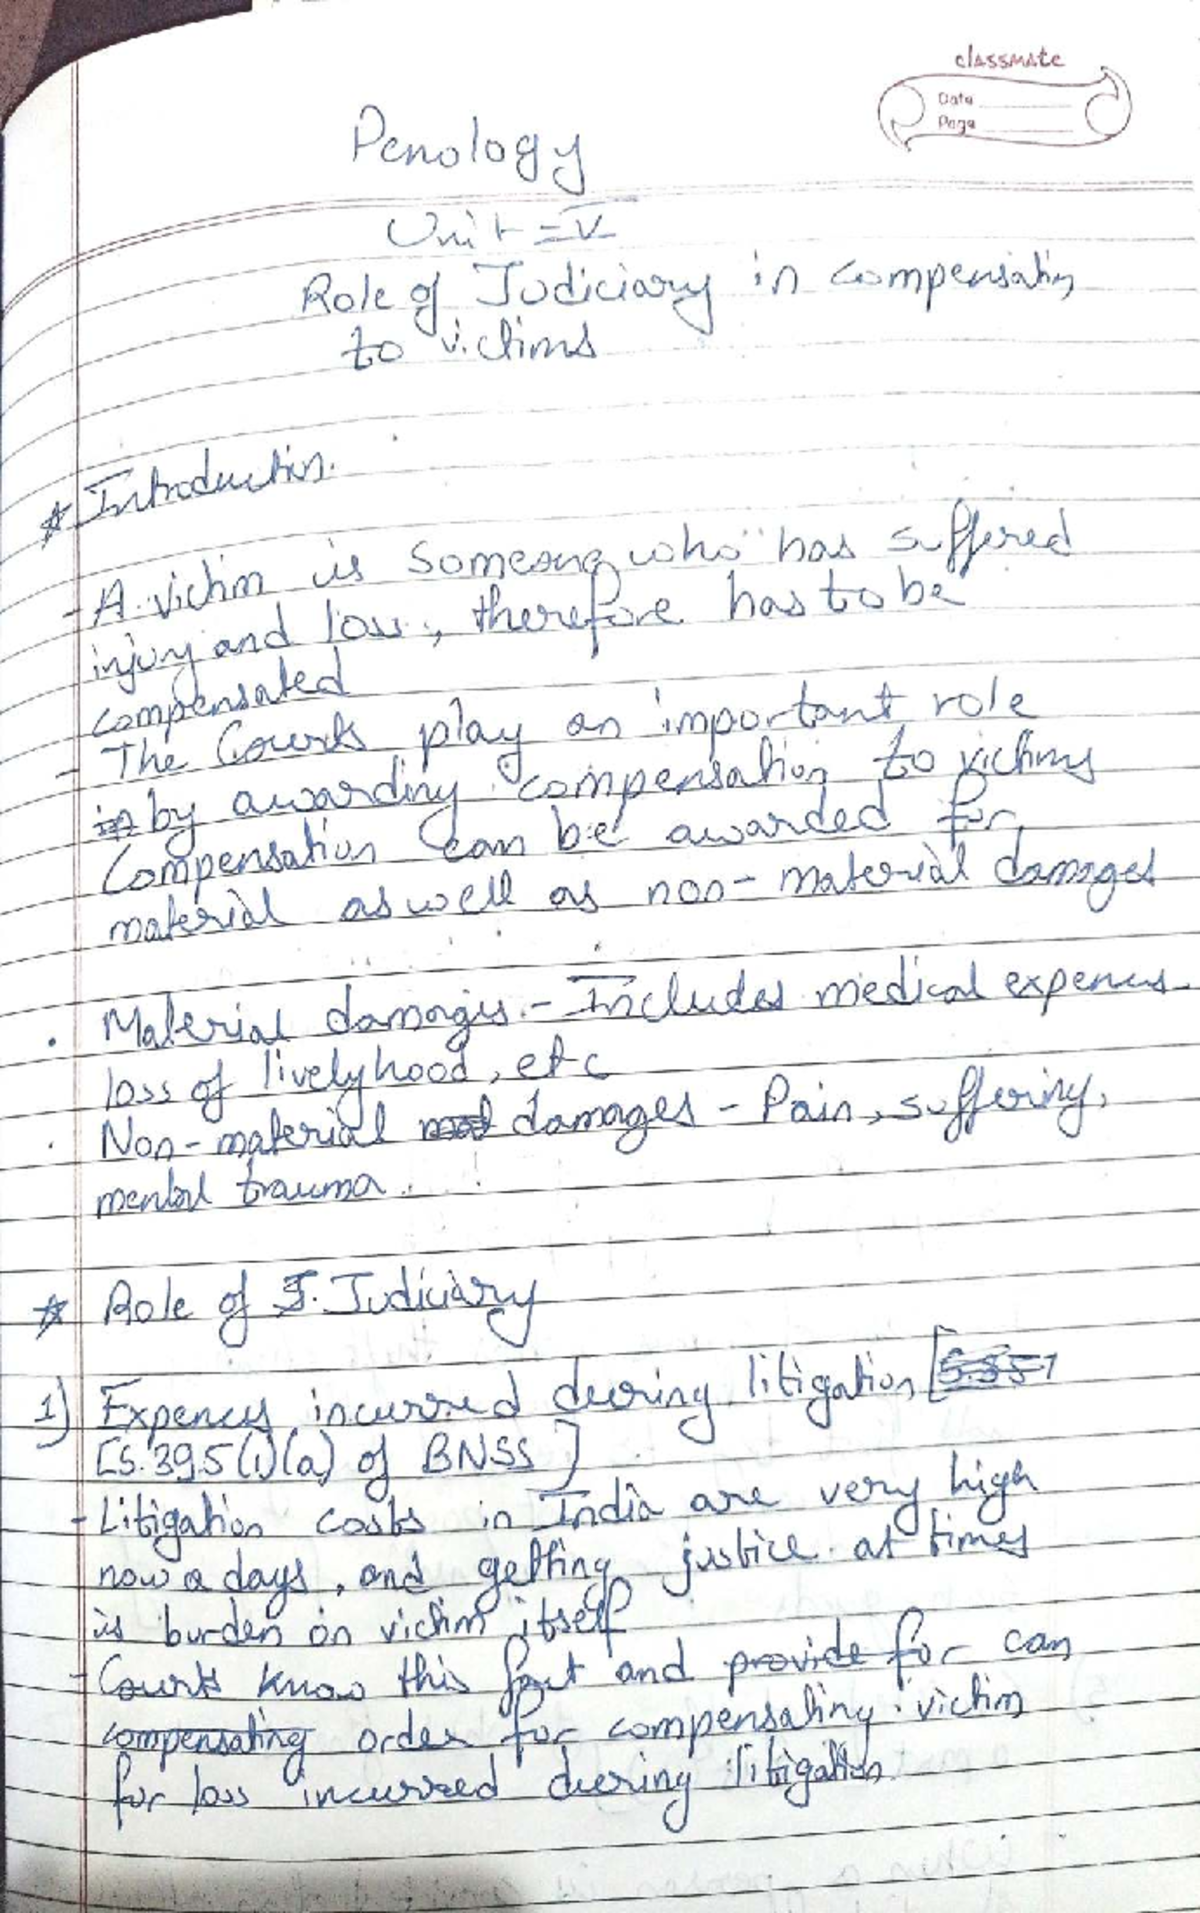 classmate
Date
Page
Penology
Unit = V
Role of Judiciary in compensatin
to victims
* Introduction.
- A victim is someone who has suffered
injury and loss, therefore has to be
compensated
- The Courts play an important role
in by awarding compensation to victims
Compensation can be awarded for
material as well as non-material damages
. Material damages - Includes medical expences
loss of livelyhood, etc
. Non-material damages - Pain, suffering,
mental trauma.
* Role of J. Judiciary
1) Expences incurred during litigation [
[S.395(1)(a) of BNSS]
- Litigation costs in India are very high
now a days, and getting justice at times
is burden on victim itself
- Courts know this fact and provide for can
compensating order for compensating victim
for loss incurred during litigation